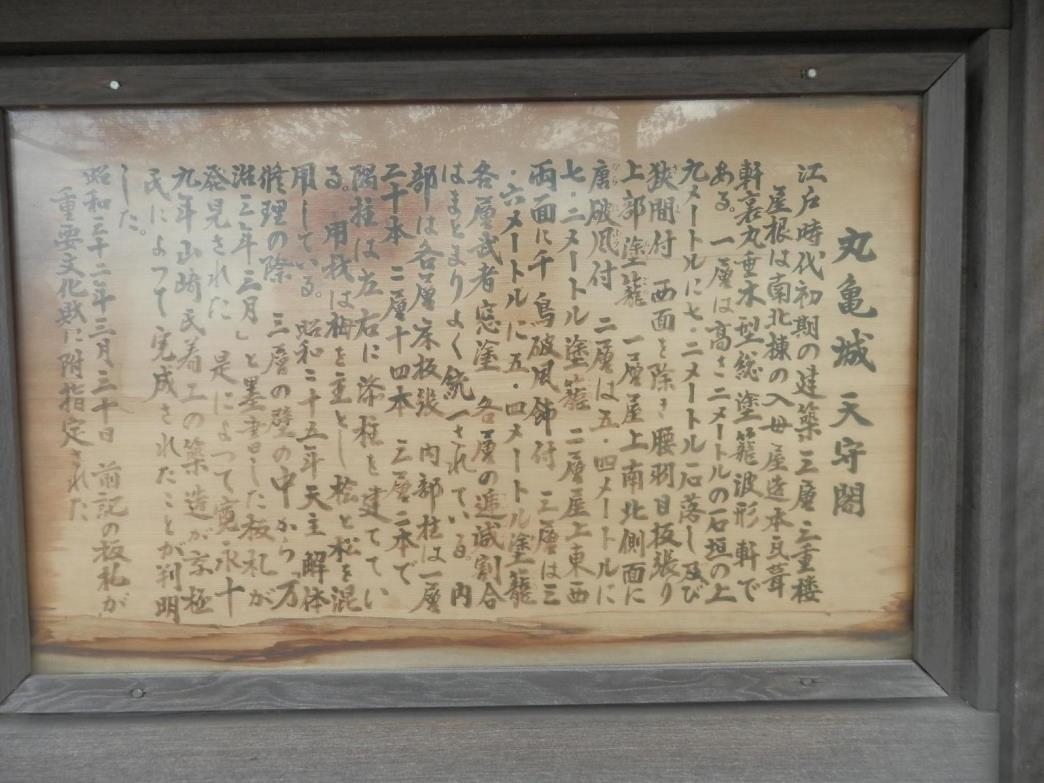 丸亀城天守閣
江戸時代初期の建築 三層三重楼
屋根は南北棟の入母屋造本瓦葺
軒裏丸重木型総塗籠波形軒で
ある。一層は高さ二メートルの石垣の上
九メートルに七・二メートル 石落し及び
狭間付 西面を除き腰羽目板張り
上部塗籠 一層屋上南北側面に
唐破風付 二層は五・四メートルに
七・二メートル塗籠 二層屋上東西
両面に千鳥破風飾付 三層は三
・六メートルに五・四メートル塗籠
各層武者窓塗 各層の逓減割合
はまとまりよく統一されている。内
部は各層床板張 内部柱は一層
二十本 二層十四本 三層二本で
隅柱は左右に添柱を建ててい
る。用材は栂を主とし桧と松を混
用している。昭和二十五年天主解体
修理の際 三層の壁の中から「万
治三年三月」と墨書した板札が
発見された 是によって寛永十
九年山崎氏着工の築造が京極
氏によって完成されたことが判明
した。
昭和三十二年三月三十日 前記の板札が
重要文化財に附指定された